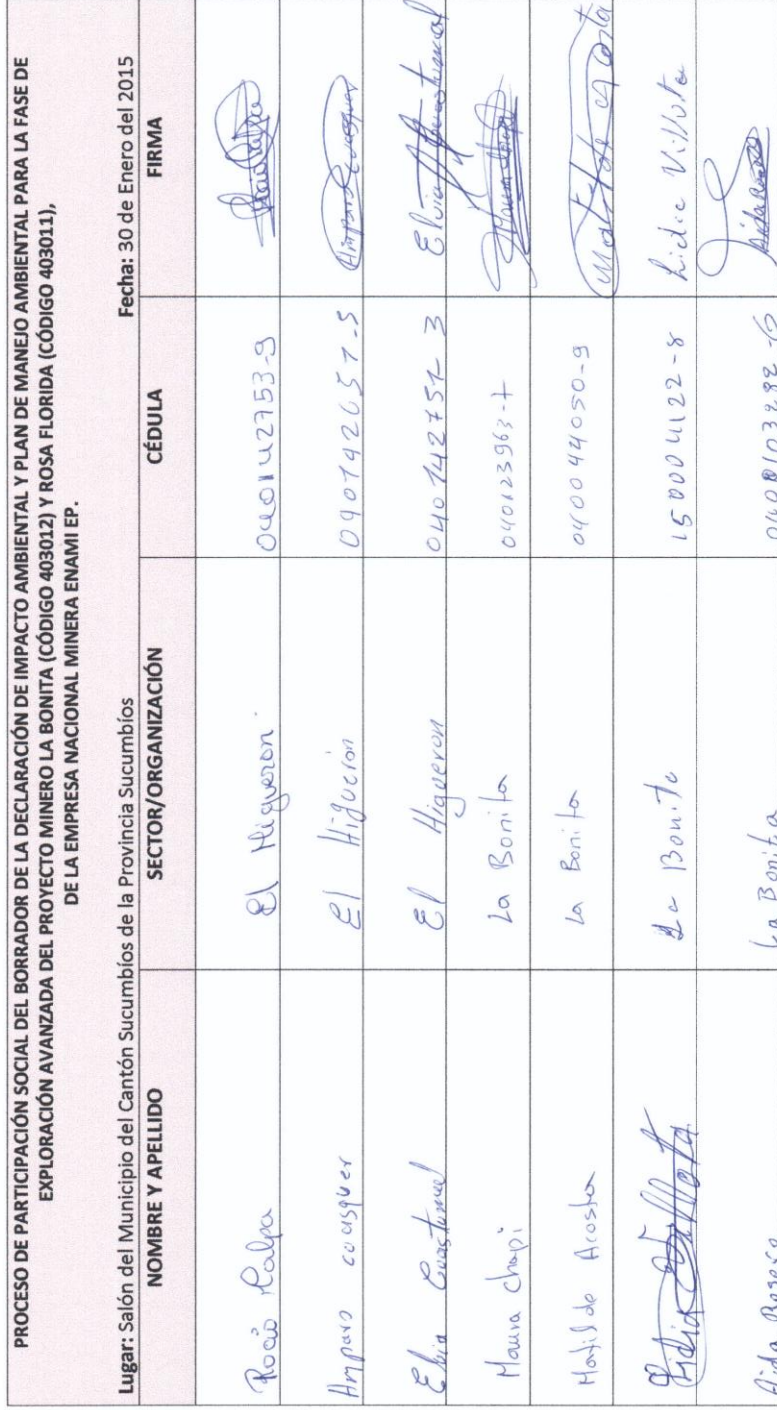 PROCESO DE PARTICIPACIÓN SOCIAL DEL BORRADOR DE LA DECLARACIÓN DE IMPACTO AMBIENTAL Y PLAN DE MANEJO AMBIENTAL PARA LA FASE DE
EXPLORACIÓN AVANZADA DEL PROYECTO MINERO LA BONITA (CÓDIGO 403012) Y ROSA FLORIDA (CÓDIGO 403011),
DE LA EMPRESA NACIONAL MINERA ENAMI EP.
Lugar: Salón del Municipio del Cantón Sucumbíos de la Provincia Sucumbíos Fecha: 30 de Enero del 2015
NOMBRE Y APELLIDO SECTOR/ORGANIZACIÓN CÉDULA FIRMA
Rocio El Higueron 040142753-9
Amparo cuasquer El Higuerón 040142657-5 Amparo Cuasquer
Elvia Cuastumal El Higueron 040142751-3 Elvia Cuastumal
Maura Chapi La Bonita 040123963-7
Matilde Acosta La Bonita 040044050-9 Matilde Acosta
Lidia Villota La Bonita 150004122-8 Lidia Villota
Aida La Bonita